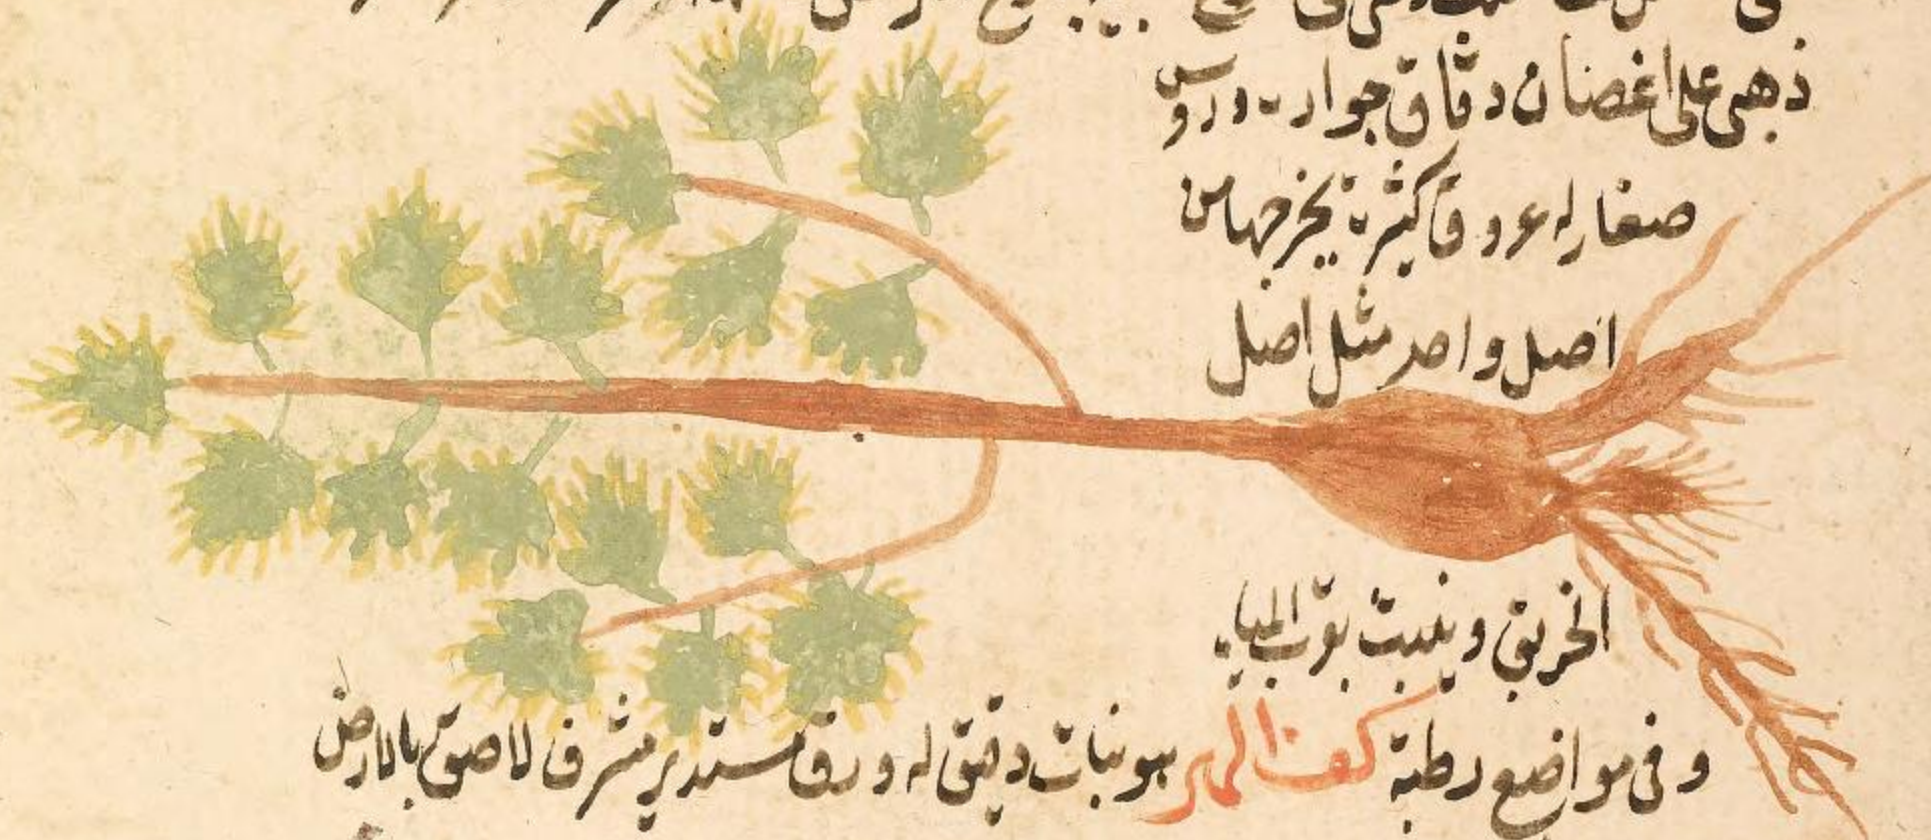 ذهبى على اغصان دقاق جوارٮ وروس
صغار له عروق كثيرة يخرجها من
اصل واحد مثل اصل
الخربق وينبت بقرب المياه
وفى مواضع رطبة كف الهر هو نبات دقيق له ورق مستدير مشرف لاصق بالارض